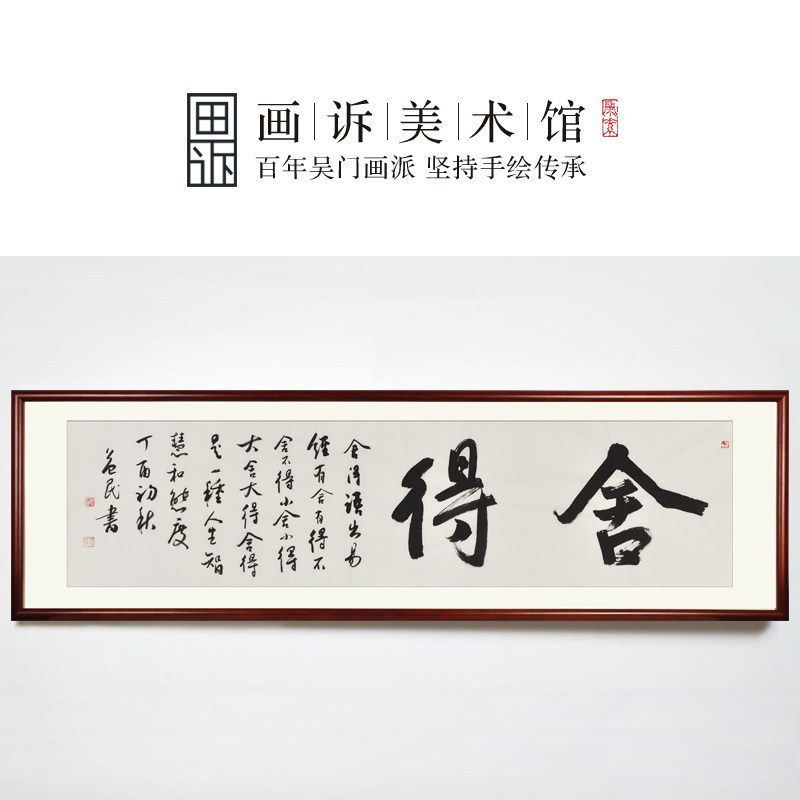 画诉
画|诉|美|术|馆
百年吴门画派 坚持手绘传承
舍得
舍得語出易
經有舍有得不
舍不得小舍小得
大舍大得舍得
是一種人生智
慧和態度
丁酉初秋
益民書